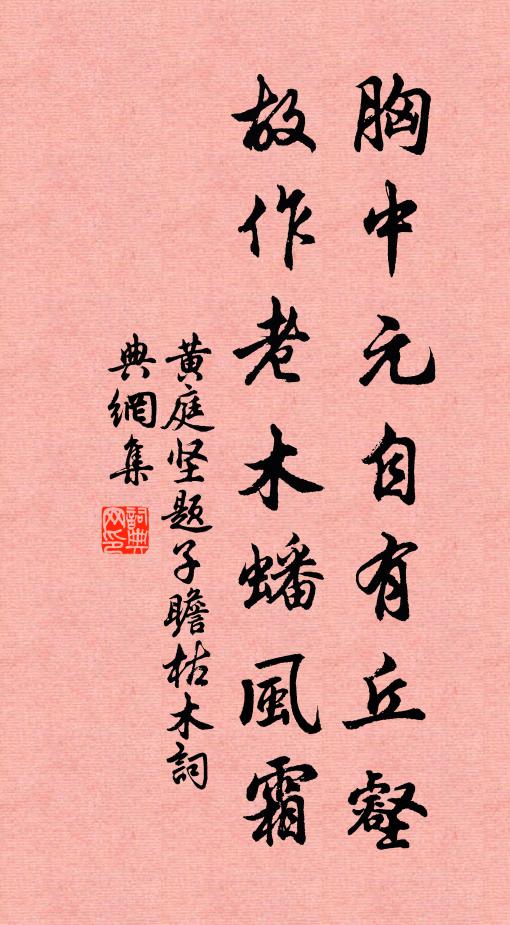 胸中元自有丘壑
故作老木蟠風霜
黄庭坚题子瞻枯木詞
典網集
詞典
网印